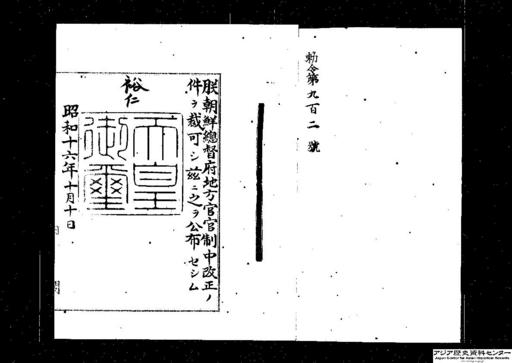 勅令第九百二號
朕朝鮮總督府地方官官制中改正ノ
件ヲ裁可シ茲ニ之ヲ公布セシム
裕仁
天皇
御璽
昭和十六年十月十日
アジア歴史資料センター
Japan Center for Asian Historical Records